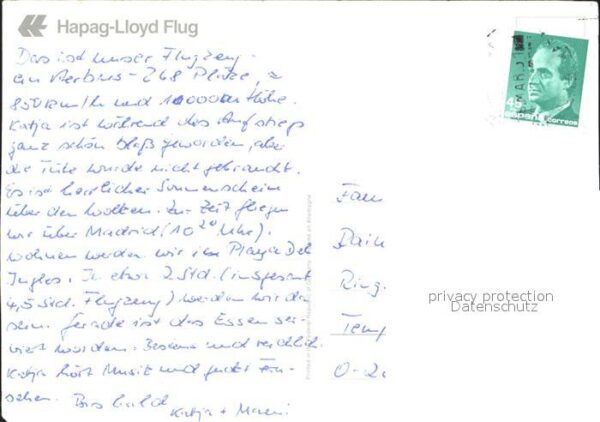 Hapag-Lloyd Flug
Das ist unser Flugzeug -
ein Aerbus - 268 Plätze,
850 km/h und 10000m Höhe.
Katja ist während des Aufstiegs
ganz schön blaß geworden, aber
die Tüte wurde nicht gebraucht.
Es ist herrlicher Sonnenschein
über den Wolken. Zur Zeit fliegen
wir über Madrid (10 20 Uhr).
Wohnen werden wir im Playa Del
Ingles. In etwa 2 Std. (insgesamt
4,5 Std. Flugzeug) werden wir da
sein. Gerade ist das Essen ser-
viert worden. Bestens und reichlich.
Katja hört Musik und guckt Fern-
sehen. Bis bald
Katja +
Fam
Ring.
Temp
O-2
45
España correos
privacy protection
Datenschutz